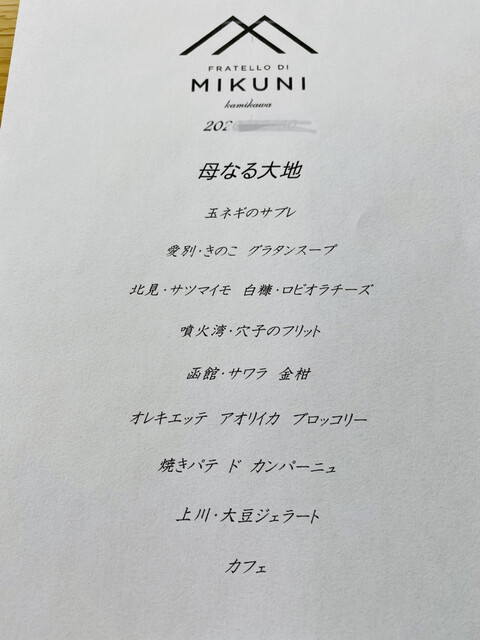 FRATELLO DI
MIKUNI
kamikawa
202
母なる大地
玉ネギのサブレ
愛別・きのこ グラタンスープ
北見・サツマイモ 白糠・ロビオラチーズ
噴火湾・穴子のフリット
函館・サワラ 金柑
オレキエッテ アオリイカ ブロッコリー
焼きパテ ド カンパーニュ
上川・大豆ジェラート
カフェ